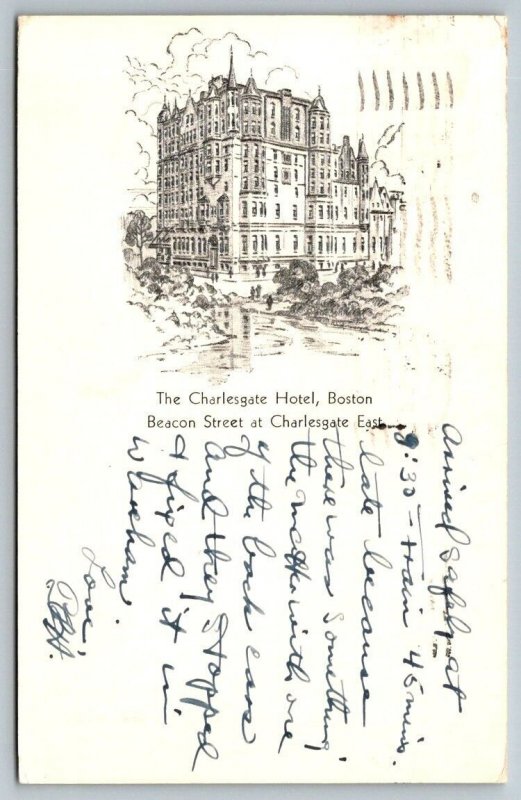 The Charlesgate Hotel, Boston
Beacon Street at Charlesgate East
Arrived safely at
8:30 - train 45 mins.
late because
there was something
the matter with one
of the back cars
and they stopped
& fixed it in
Wareham.
Love,